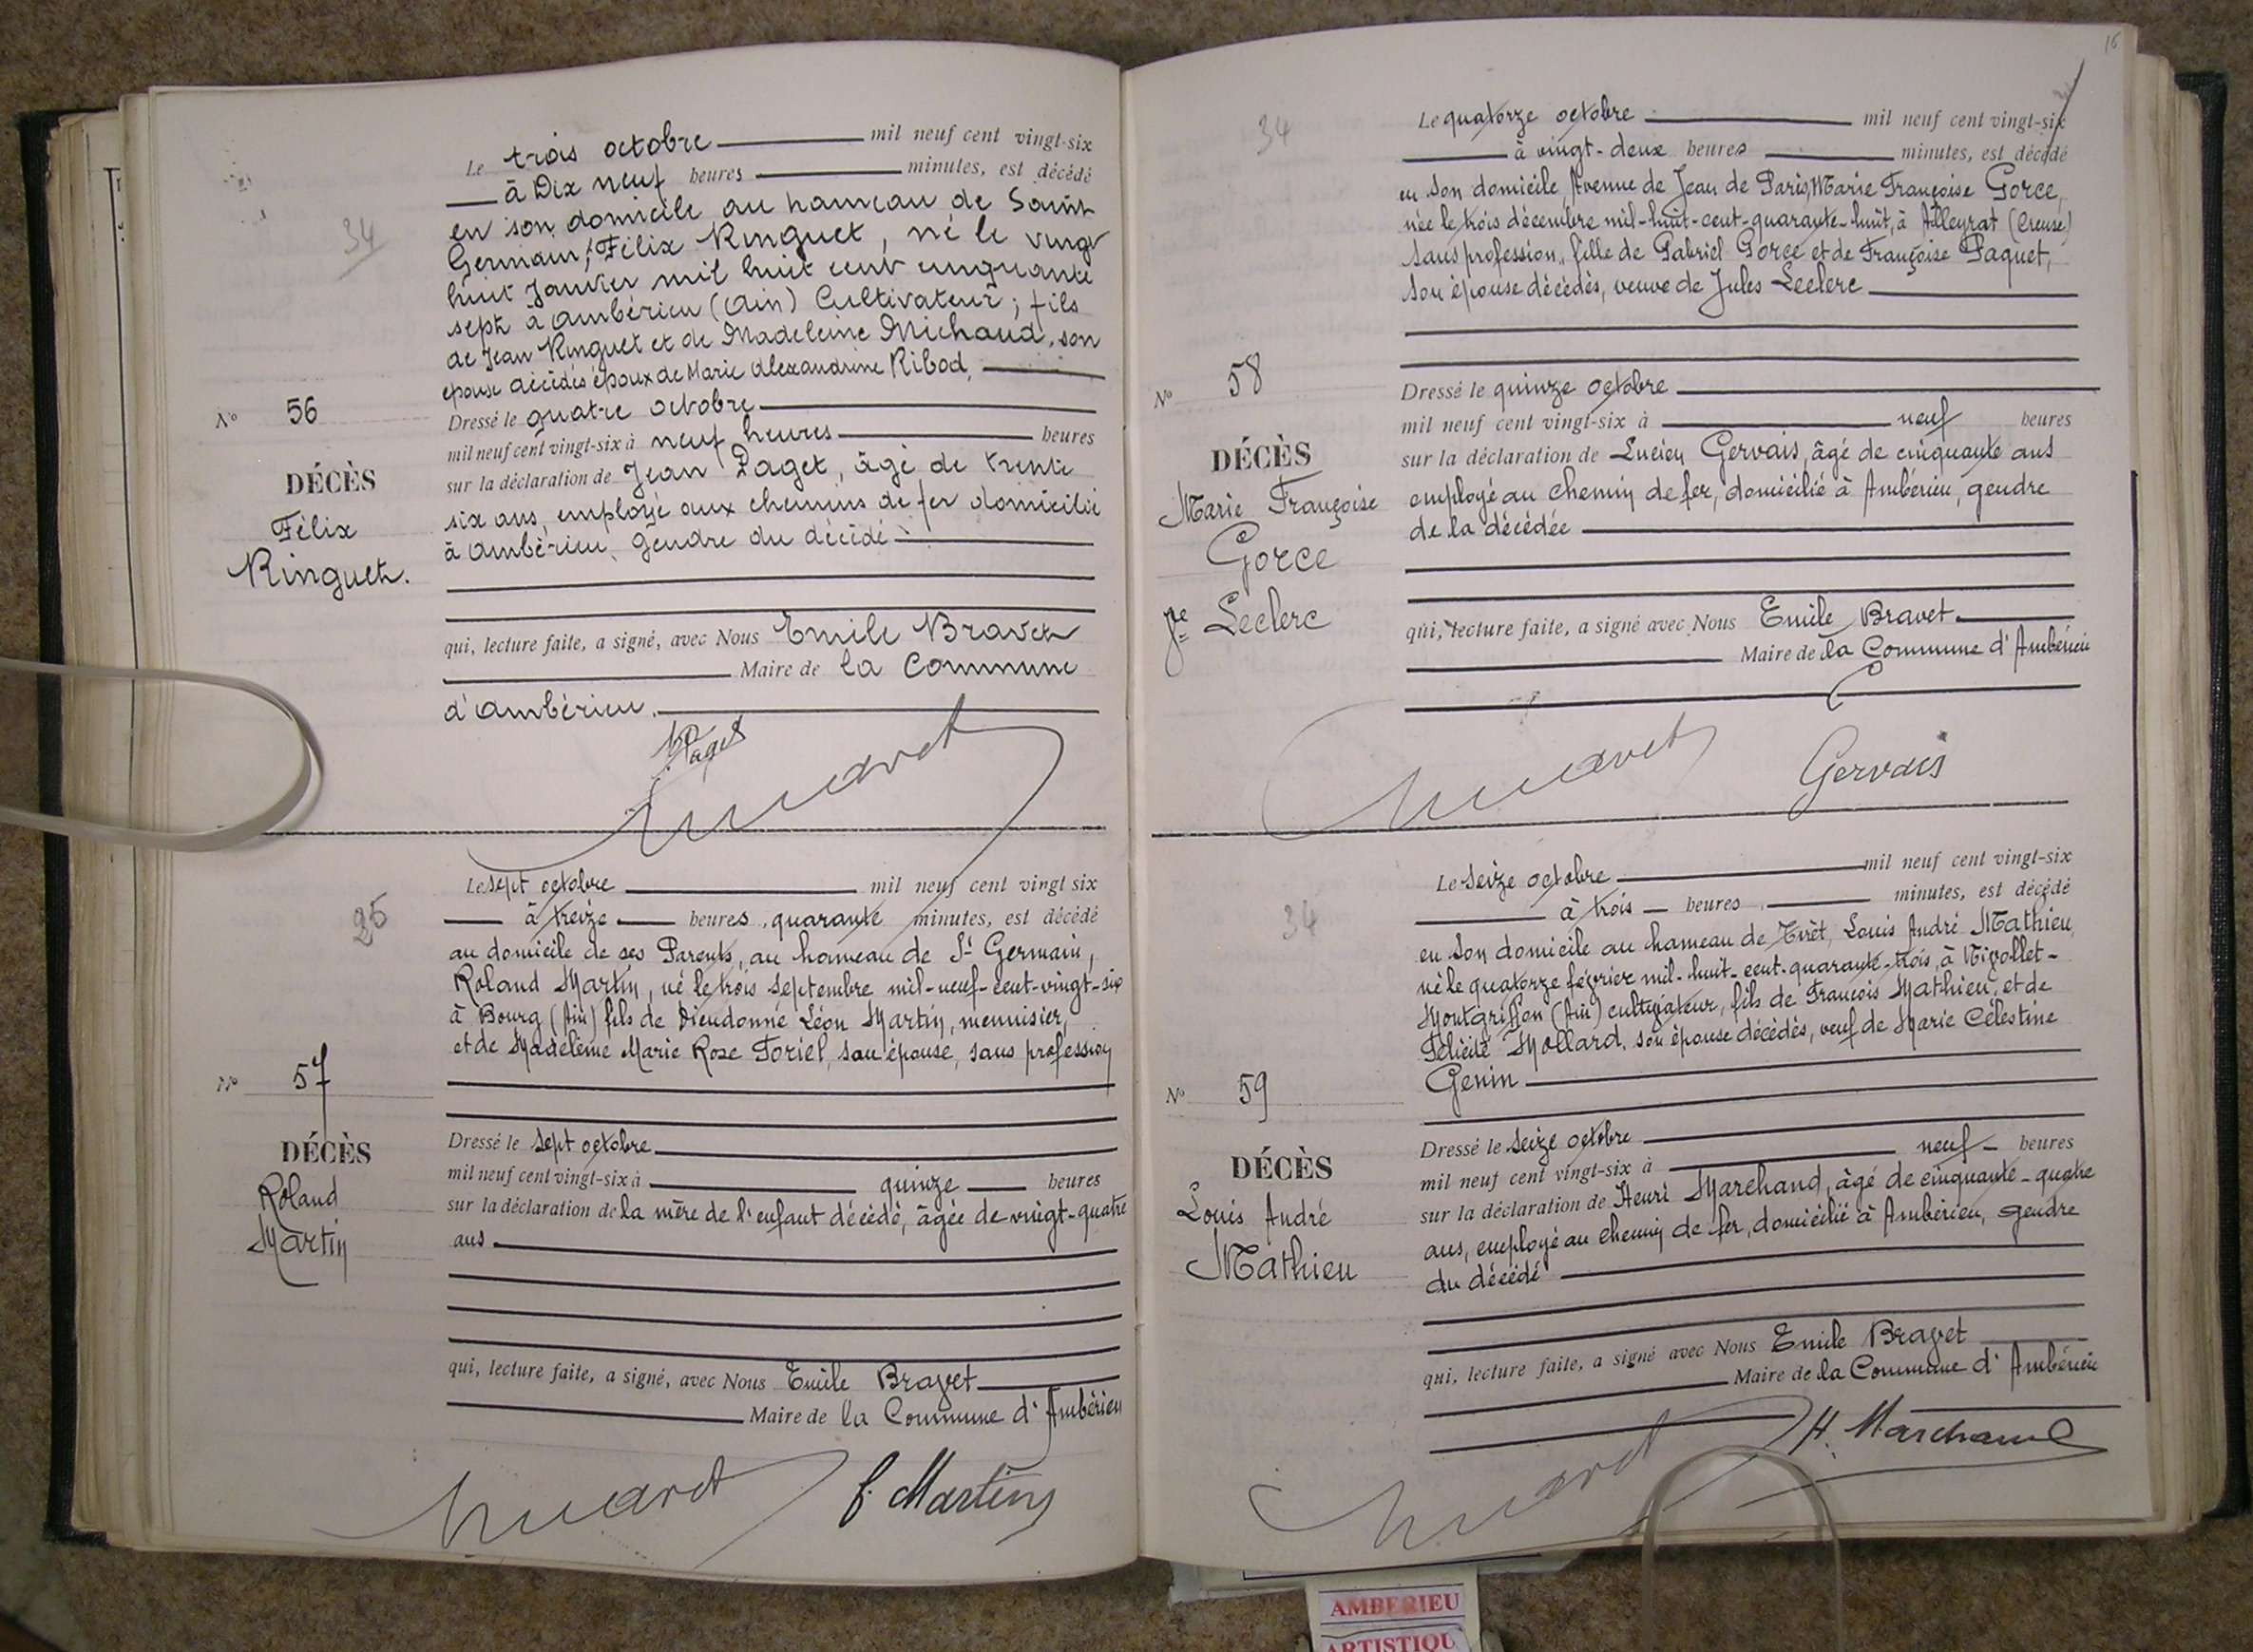 34
Le trois octobre mil neuf cent vingt-six
à Dix neuf heures minutes, est décédé
en son domicile au hameau de Saint
Germain, Félix Ringuet, né le vingt
huit Janvier mil huit cent cinquante
sept à Ambérieu (Ain) Cultivateur ; fils
de Jean Ringuet et de Madeleine Michaud, son
épouse décédés époux de Marie Alexandrine Ribod,
Nº 56
DÉCÈS
Félix
Ringuet.
Dressé le quatre octobre
mil neuf cent vingt-six à neuf heures heures
sur la déclaration de Jean Paget, âgé de trente
six ans, employé aux chemins de fer domicilié
à Ambérieu, gendre du décédé
qui, lecture faite, a signé, avec Nous Emile Bravet
Maire de la Commune
d'Ambérieu.
Paget
Bravet
Le sept octobre mil neuf cent vingt six
à treize heures, quarante minutes, est décédé
au domicile de ses Parents, au hameau de St Germain,
Roland Martin, né le trois Septembre mil-neuf-cent-vingt-six
à Bourg (Ain) fils de Dieudonné Léon Martin, menuisier,
et de Madeleine Marie Rose Foriel, son épouse, sans profession
Nº 57
DÉCÈS
Roland
Martin
Dressé le sept octobre
mil neuf cent vingt-six à quinze heures
sur la déclaration de la mère de l'enfant décédé, âgée de vingt-quatre
ans
qui, lecture faite, a signé, avec Nous Emile Bravet
Maire de la Commune d'Ambérieu
Bravet
Martin
16
34
Le quatorze octobre mil neuf cent vingt-six
à vingt-deux heures minutes, est décédé
en son domicile Avenue de Jean de Paris, Marie Françoise Gorce,
née le trois décembre mil-huit-cent-quarante-huit, à Alleyrat (Creuse)
sans profession, fille de Gabriel Gorce et de Françoise Paquet,
son épouse décédés, veuve de Jules Leclerc
Nº 58
DÉCÈS
Marie Françoise
Gorce
Ve Leclerc
Dressé le quinze octobre
mil neuf cent vingt-six à neuf heures
sur la déclaration de Lucien Gervais, âgé de cinquante ans
employé au chemin de fer, domicilié à Ambérieu, gendre
de la décédée
qui, lecture faite, a signé avec Nous Emile Bravet
Maire de la Commune d'Ambérieu
Bravet Gervais
34
Le seize octobre mil neuf cent vingt-six
à trois heures minutes, est décédé
en son domicile au hameau de Tiret, Louis André Mathieu,
né le quatorze février mil-huit-cent-quarante-trois, à Nivollet-
Montgriffon (Ain) cultivateur, fils de François Mathieu, et de
Félicité Mollard, son épouse décédés, veuf de Marie Célestine
Genin
Nº 59
DÉCÈS
Louis André
Mathieu
Dressé le seize octobre
mil neuf cent vingt-six à neuf heures
sur la déclaration de Henri Marchand, âgé de cinquante-quatre
ans, employé au chemin de fer, domicilié à Ambérieu, gendre
du décédé
qui, lecture faite, a signé avec Nous Emile Bravet
Maire de la Commune d'Ambérieu
Bravet H. Marchand
AMBERIEU
ARTISTIQU